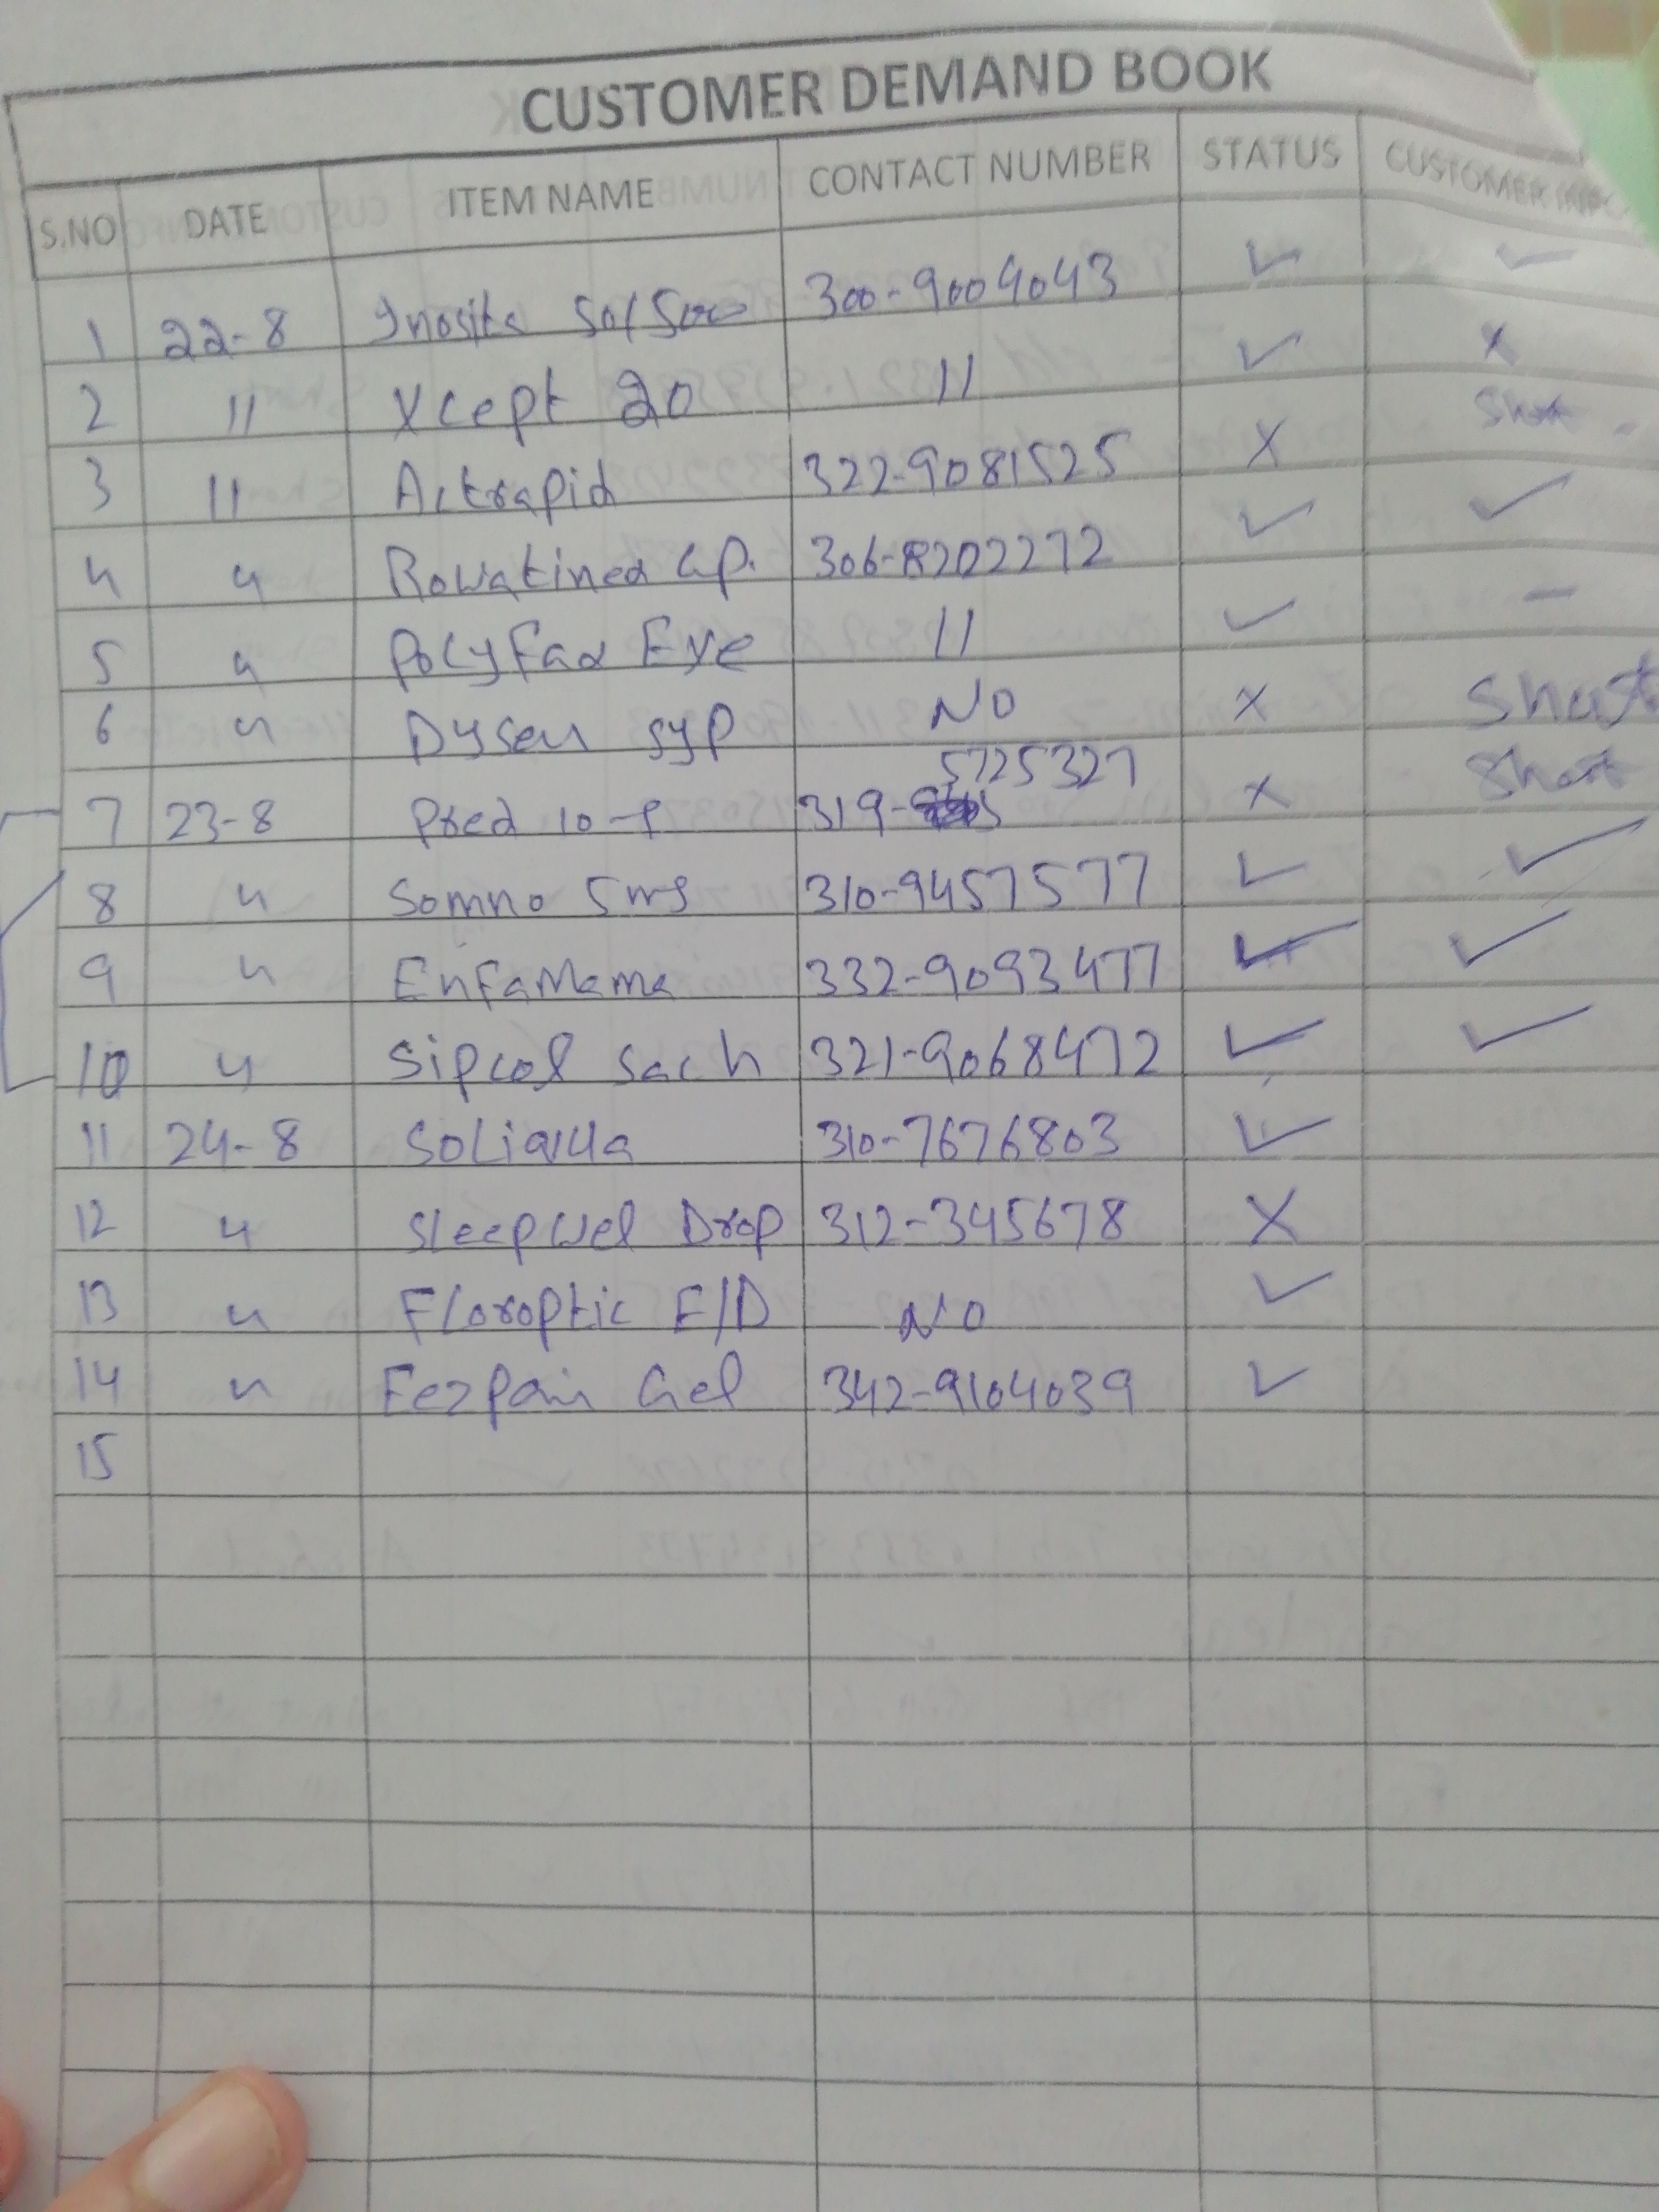 CUSTOMER DEMAND BOOK
S.NO DATE ITEM NAME CONTACT NUMBER STATUS CUSTOMER INFO
1 22-8 Inosita 50/500 300-9004043 ✓ ✓
2 11 Xcept 20 11 ✓ x
3 11 Actrapid 322-9081525 X Short -
4 " Rowatinex Cap. 306-8202272 ✓ ✓
5 " Polyfax Eye 11 ✓ -
6 " Dysen syp NO x Short
7 23-8 Pred 10-f 319-5725327 x Short
8 " Somno 5mg 310-9457577 ✓ ✓
9 " EnfaMama 332-9093477 ✓ ✓
10 " Sipcol Sach 321-9068472 ✓ ✓
11 24-8 Soliqua 310-7676803 ✓
12 " Sleepwel Drop 312-345678 X
13 " Floroptic E/D NO ✓
14 " Fezpain Gel 342-9104039 ✓
15